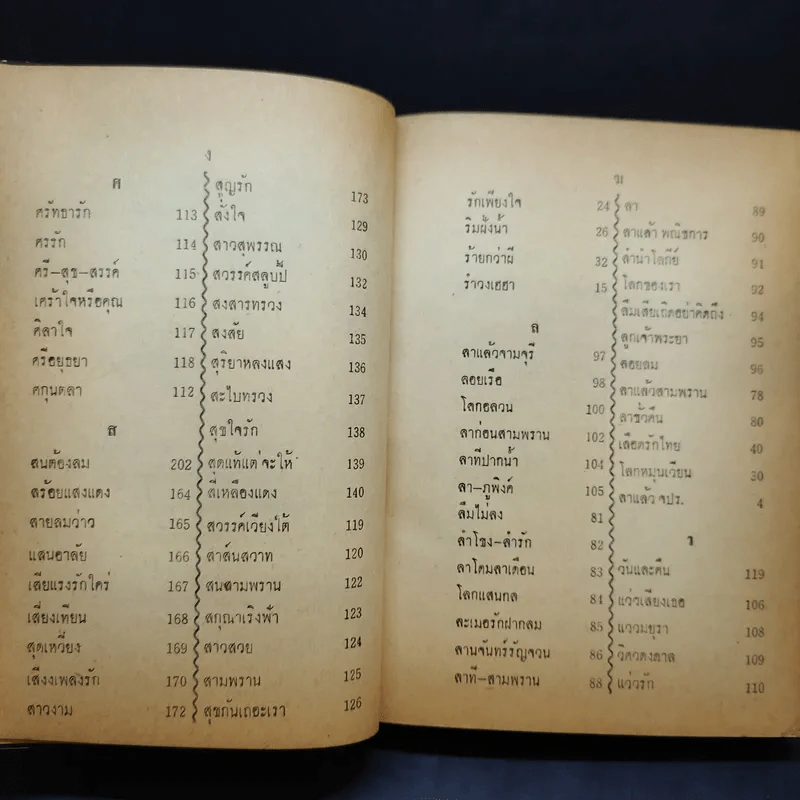 ง
ศ
ศรัทธารัก 113
ศรรัก 114
ศรี-สุข-สรรค์ 115
เศร้าใจหรือคุณ 116
ศิลาใจ 117
ศรีอยุธยา 118
ศกุนตลา 112
ส
สนต้องลม 202
สร้อยแสงแดง 164
สายลมว่าว 165
แสนอาลัย 166
เสียแรงรักใคร่ 167
เสี่ยงเทียน 168
สุดเหวี่ยง 169
เสียงเพลงรัก 170
สาวงาม 172
สูญรัก 173
สั่งใจ 129
สาวสุพรรณ 130
สวรรค์สลูบปี 132
สงสารทรวง 134
สงสัย 135
สุริยาหลงแสง 136
สะไบทรวง 137
สุขใจรัก 138
สุดแท้แต่จะให้ 139
สี่เหลืองแดง 140
สวรรค์เวียงใต้ 119
สาส์นสวาท 120
สนสามพราน 122
สกุณาเริงฟ้า 123
สาวสวย 124
สามพราน 125
สุขกันเถอะเรา 126
ฆ
รักเพียงใจ 24
ริมฝั่งน้ำ 26
ร้ายกว่าผี 32
รำวงเฮฮา 15
ล
ลาแล้วจามจุรี 97
ลอยเรือ 98
โลกอลวน 100
ลาก่อนสามพราน 102
ลาทีปากน้ำ 104
ลา-ภูพิงค์ 105
ลืมไม่ลง 81
ลำโขง-ลำรัก 82
ลาโคมลาเดือน 83
โลกแสนกล 84
ละเมอรักฝากลม 85
ลานจันทร์รัญจวน 86
ลาที-สามพราน 88
ลา 89
ลาแล้ว พณิชการ 90
ลำนำโลกีย์ 91
โลกของเรา 92
ลืมเสียเถิดอย่าคิดถึง 94
ลูกเจ้าพระยา 95
ลอยลม 96
ลาแล้วสามพราน 78
ลาชั่วคืน 80
เลือดรักไทย 40
โลกหมุนเวียน 30
ลาแล้ว จปร. 4
ว
วันและคืน 119
แว่วเสียงเธอ 106
แววมยุรา 108
วิศวดงตาล 109
แว่วรัก 110